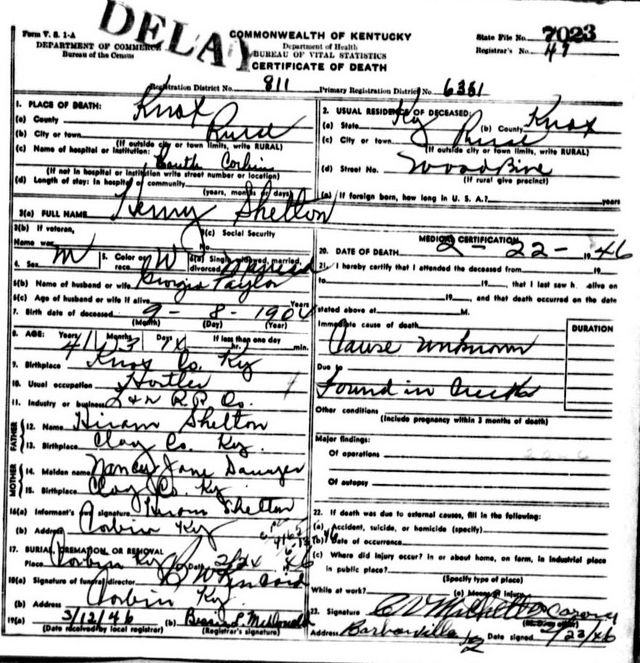 DELAY
Form V. S. 1-A
DEPARTMENT OF COMMERCE
Bureau of the Census
COMMONWEALTH OF KENTUCKY
Department of Health
BUREAU OF VITAL STATISTICS
CERTIFICATE OF DEATH
State File No. 7023
Registrar's No. 47
Registration District No. 811 Primary Registration District No. 6361
1. PLACE OF DEATH:
(a) County Knox
(b) City or town Rural
(If outside city or town limits, write RURAL)
(c) Name of hospital or institution:
South Corbin
(If not in hospital or institution write street number or location)
(d) Length of stay: In hospital or community
(years, months or days)
2. USUAL RESIDENCE OF DECEASED:
(a) State Ky (b) County Knox
(c) City or town Rural
(If outside city or town limits, write RURAL)
(d) Street No. WoodBine
(If rural give precinct)
(e) If foreign born, how long in U. S. A.? years
3(a) FULL NAME Henry Shelton
3(b) If veteran,
Name war
3(c) Social Security
No.
4. Sex M 5. Color or race W 6(a) Single, widowed, married, divorced Married
6(b) Name of husband or wife Georgia Taylor
6(c) Age of husband or wife if alive Years
7. Birth date of deceased 9-8-1904
(Month) (Day) (Year)
8. AGE: Years Months Days If less than one day
41 hr. min.
9. Birthplace Knox Co. Ky
10. Usual occupation Hostler
11. Industry or business L & N R.R. Co.
FATHER
12. Name Hiram Shelton
13. Birthplace Clay Co. Ky.
MOTHER
14. Maiden name Nancy Jane
15. Birthplace Clay Co. Ky
16(a) Informant's signature Hiram Shelton
(b) Address Corbin Ky
17. BURIAL, CREMATION, OR REMOVAL
Place Corbin Ky Date 2/24 46
18(a) Signature of funeral director
(b) Address Corbin Ky.
19(a) 3/12/46 (b) McDonald
(Date received by local registrar) (Registrar's signature)
MEDICAL CERTIFICATION
20. DATE OF DEATH 2-22-1946
21. I hereby certify that I attended the deceased from 19
to 19 , that I last saw h. alive on
19 , and that death occurred on the date
stated above at M.
Immediate cause of death DURATION
Cause unknown
Due to
Found in Creek
Other conditions
(Include pregnancy within 3 months of death)
Major findings:
Of operations
Of autopsy
22. If death was due to external causes, fill in the following:
(a) Accident, suicide, or homicide (specify)
(b) Date of occurrence
(c) Where did injury occur? in or about home, on farm, in industrial place
in public place?
(Specify type of place)
While at work? (e) Means of injury
23. Signature Mitchell
Address Barbourville Date signed 2/23/46